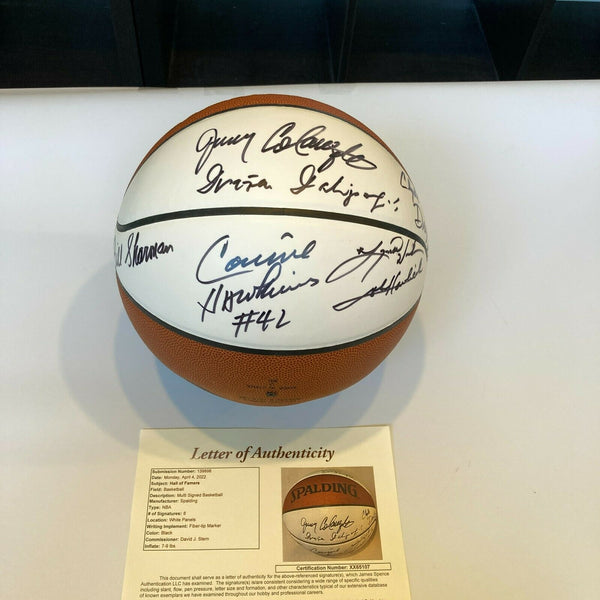 Jerry Colangelo
Bill Sharman
Connie
Hawkins
#42
Letter of Authenticity
Submission Number: 139898
Date: Monday, April 4, 2022
Subject: Hall of Famers
Field: Basketball
Description: Multi Signed Basketball
Manufacturer: Spalding
Type: NBA
# of Signatures: 8
Location: White Panels
Writing Implement: Fiber-tip Marker
Color: Black
Commissioner: David J. Stern
Inflate: 7-9 lbs
SPALDING
Jerry Colangelo
Certification Number: XX65107
This document shall serve as a letter of authenticity for the above-referenced signature(s), which James Spence
Authentication LLC has examined. The signature(s) are consistent considering a wide range of specific qualities
including slant, flow, pen pressure, letter size and formation, and other details typical of our extensive database
of known exemplars we have examined throughout our hobby and professional careers.